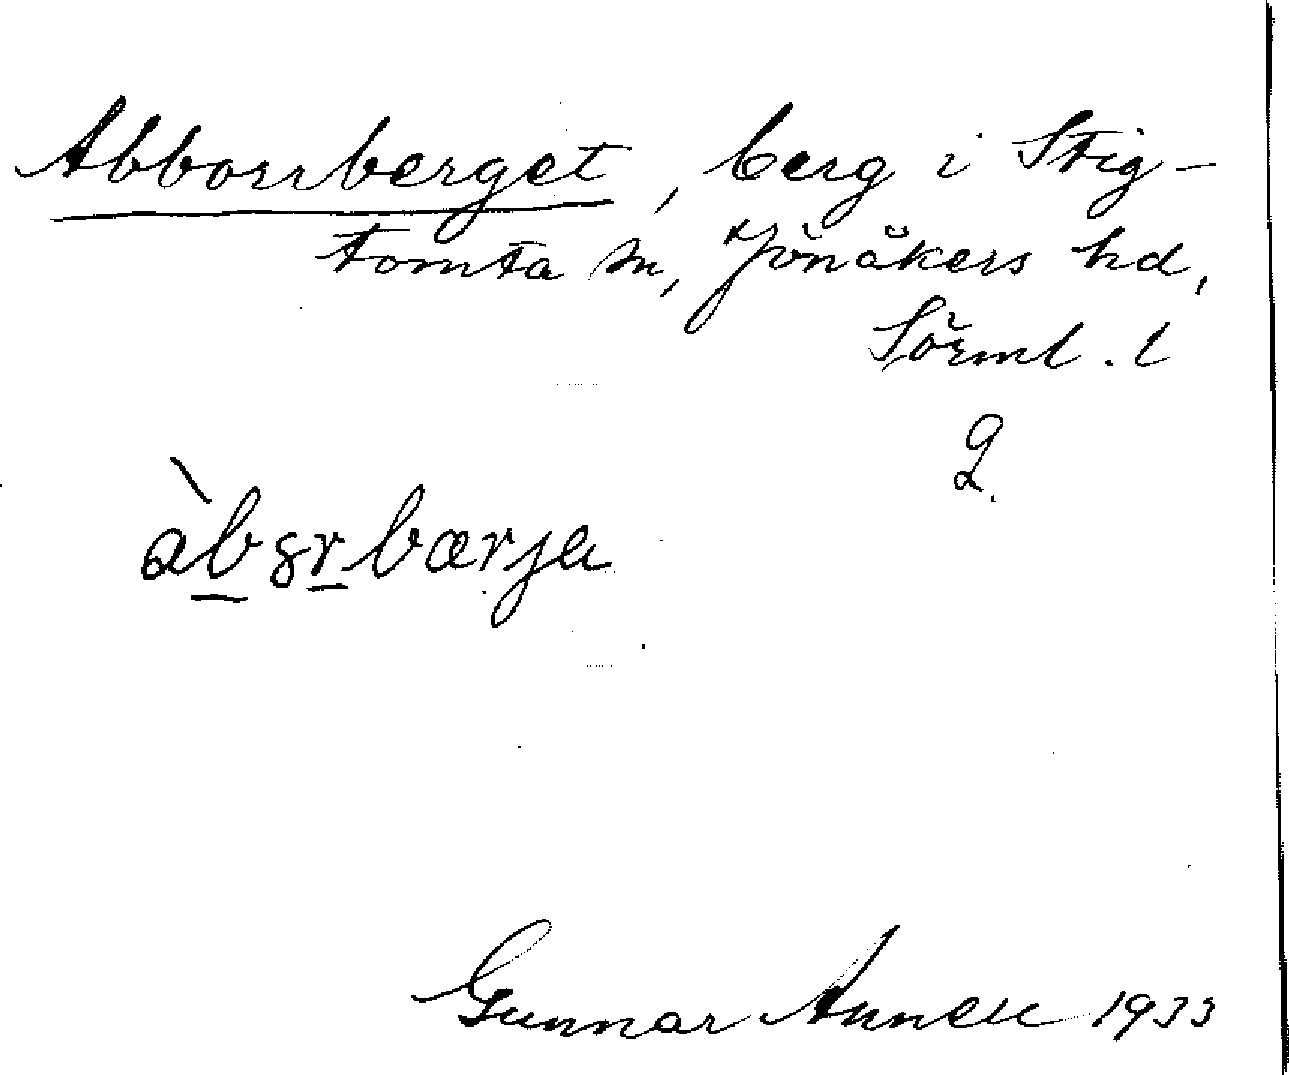 Abborrberget, berg i Stig-
tomta sn, Jönåkers hd,
Sörml. l
2.
àbgrbærja
Gunnar Annell 1933